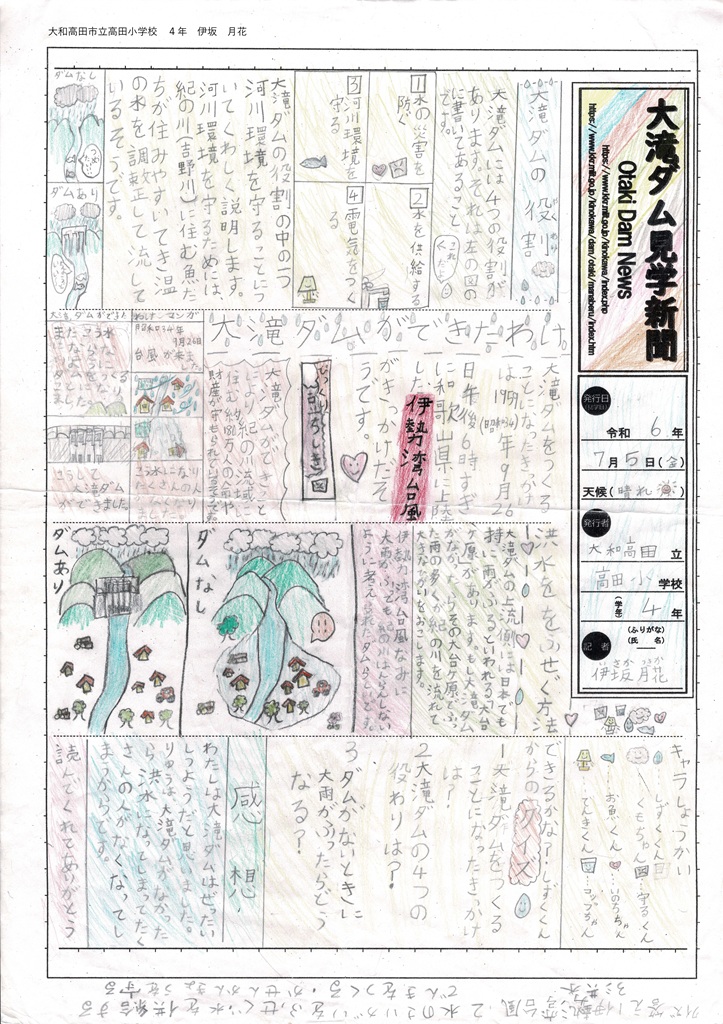 大和高田市立高田小学校 4年 伊坂 月花
大滝ダム見学新聞
Otaki Dam News
https://www.kkr.mlit.go.jp/kinokawa/index.php
発行日
令和 6 年
7月5日(金)
天候(晴れ)
発行者
大和高田 立
高田小 学校
(学年) 4 年
記者
(ふりがな)
(氏名)
いさか つきか
伊坂 月花
大滝ダムの役割
大滝ダムには4つの役割が
あります。それは左の図の
に書いてあること
です。
1 水の災害を
防ぐ
2 水を供給する
3 河川環境を
守る
4 電気をつくる
大滝ダムの役割の中の一つ
河川環境を守る。ことにつ
いてくわしく説明します。
河川環境を守るためには、
紀の川(吉野川)に住む魚た
ちが住みやすいてき温
の水を調整して流して
いるそうです。
ダムなし
ダムあり
大滝ダムができたわけ
大滝ダムをつくる
ことになったきっかけ
は、1959(昭和34)年9月26
日午後6時すぎ
に和歌山県に上陸
した伊勢湾台風
がきっかけだそ
うです。
びっくり
豆ちしき
大滝ダムができたこと
により、紀の川流域に
住む約
財産が守もられ
昭和34年
9月26日
台風が来ました。
洪水をふせぐ方法
大滝ダムの上流側には日本でも
特に雨がふるといわれる大台
ケ原があります。もし大滝ダム
がなかったらその大台ケ原でふっ
た雨の多くが紀の川を流れて
大きなひがいをおこします。
伊勢湾台風なみに
大雨がふっても紀の川がはんらんしない
ように考えられたダムだそうです。
ダムなし
ダムあり
キャラしょうかい
しずくくん
守るくん
くもちゃん
お魚くん
いのちちゃん
でんきくん
コップちゃん
できるかな?しずくくん
からのクイズ
1 大滝ダムをつくる
ことになったきっかけ
は?
2 大滝ダムの4つの
役わりは?
3 ダムがないときに
大雨がふったらどう
なる?
感想
わたしは大滝ダムはぜったい
ひつようだと思いました。
りゆうは大滝ダムがなかった
ら、洪水になってしまってたく
さんの人がなくなってし
まうからです。
読んでくれてありがとう
クイズ答え 1伊勢湾台風 2 水のさいがいをふせぐ・水を供給する
でんきをつくる・かせんかんきょうを守る
3洪水